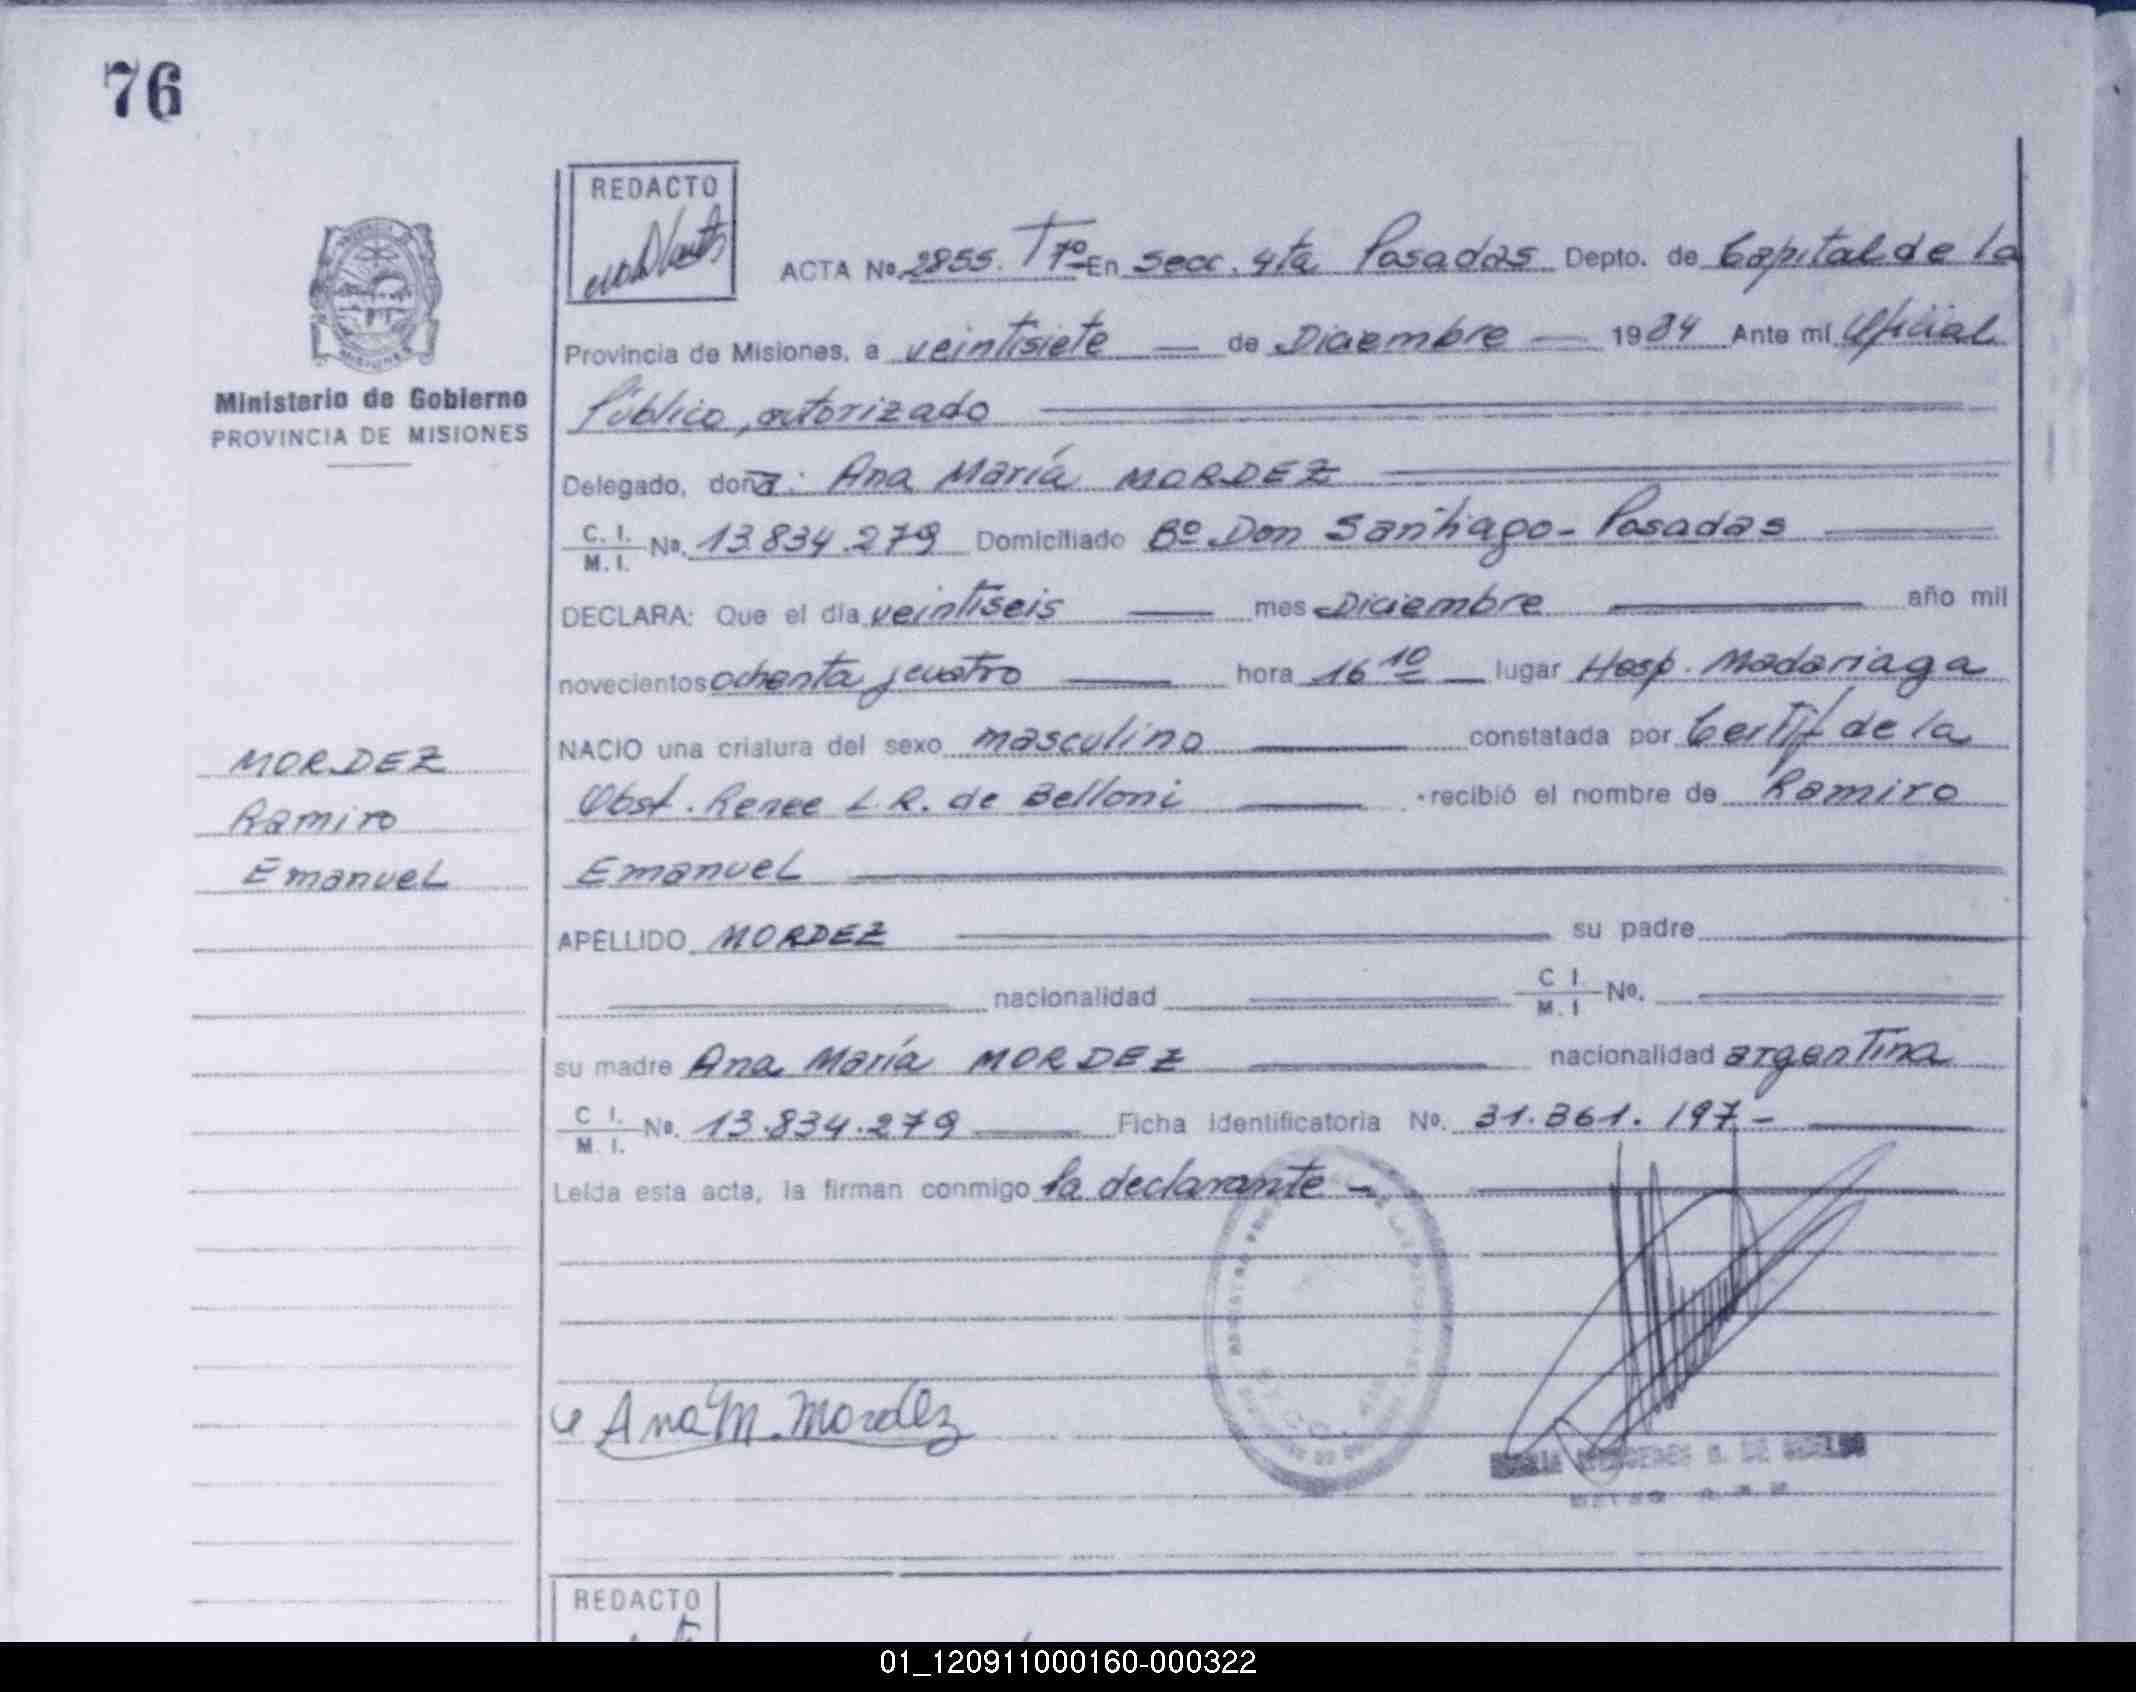 76
REDACTO
ACTA No. 2855. T 7º En Secc. 4ta Posadas Depto. de Capital de la
Provincia de Misiones, a veintisiete de Diciembre 1984 Ante mí Oficial
Público, autorizado
Ministerio de Gobierno
PROVINCIA DE MISIONES
Delegado, doña: Ana María MORDEZ
C. I.
M. I. No. 13.834.279 Domiciliado Bº Don Santiago - Posadas
DECLARA: Que el día veintiseis mes Diciembre año mil
novecientos ochenta y cuatro hora 16 10 lugar Hosp. Madariaga
NACIO una criatura del sexo masculino constatada por Certif de la
Obst. Renee L. R. de Belloni recibió el nombre de Ramiro
Emanuel
MORDEZ
Ramiro
Emanuel
APELLIDO MORDEZ su padre
nacionalidad C I.
M. I No.
su madre Ana María MORDEZ nacionalidad argentina
C I.
M. I. No. 13.834.279 Ficha Identificatoria No. 31.361.197.-
Leída esta acta, la firman conmigo la declarante -
Ana M. Mordez
REDACTO
01_120911000160-000322